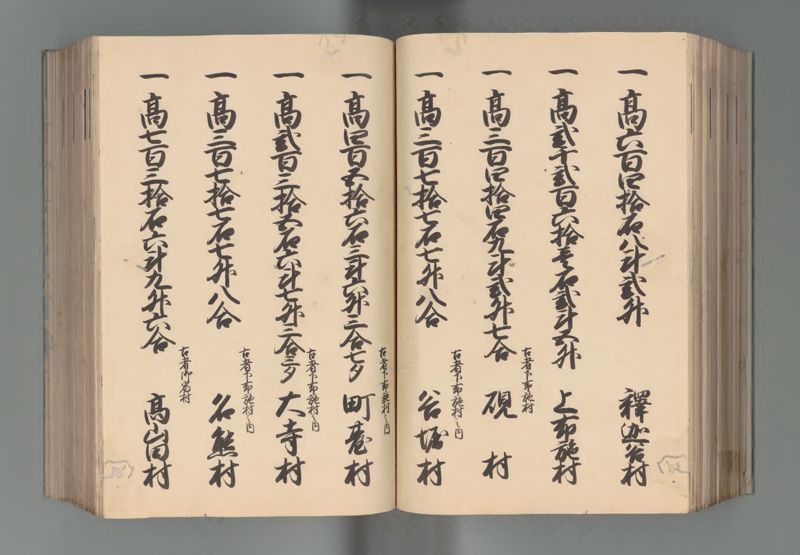 一 高六百四拾石八斗弐升 釋迦谷村
一 高弐千弐百六拾壱石弐斗五升 上布施村
一 高三百四拾四石九斗弐升七合 硯村
古者下布施村之内
一 高三百七拾七石七升八合 谷堀村
古者下布施村之内
一 高四百五拾六石三斗六升三合七夕 町壱村
古者下布施村之内
一 高弐百三拾五石六斗七升三合三夕 大寺村
古者下布施村之内
一 高三百七拾七石七升八合 名熊村
古者下布施村之内
一 高七百三拾石六斗九升六合 高山田村
古者御宿村